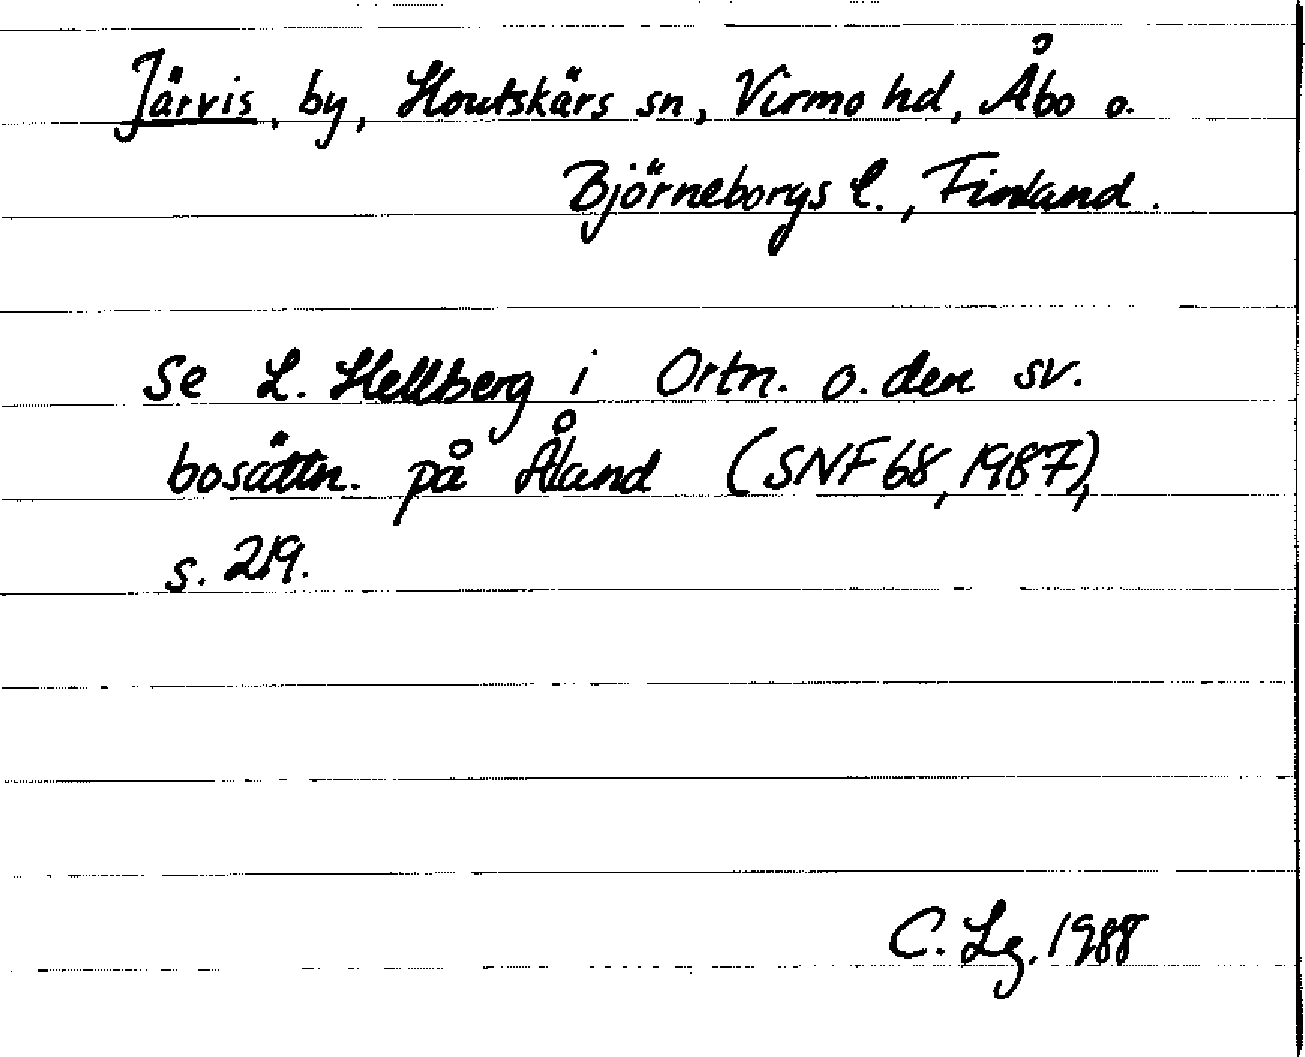 Järvis, by, Houtskärs sn, Virmo hd, Åbo o.
Björneborgs l., Finland.
Se L. Hellberg i Ortn. o. den sv.
bosättn. på Åland (SNF 68, 1987),
s. 219.
C. Lg. 1988